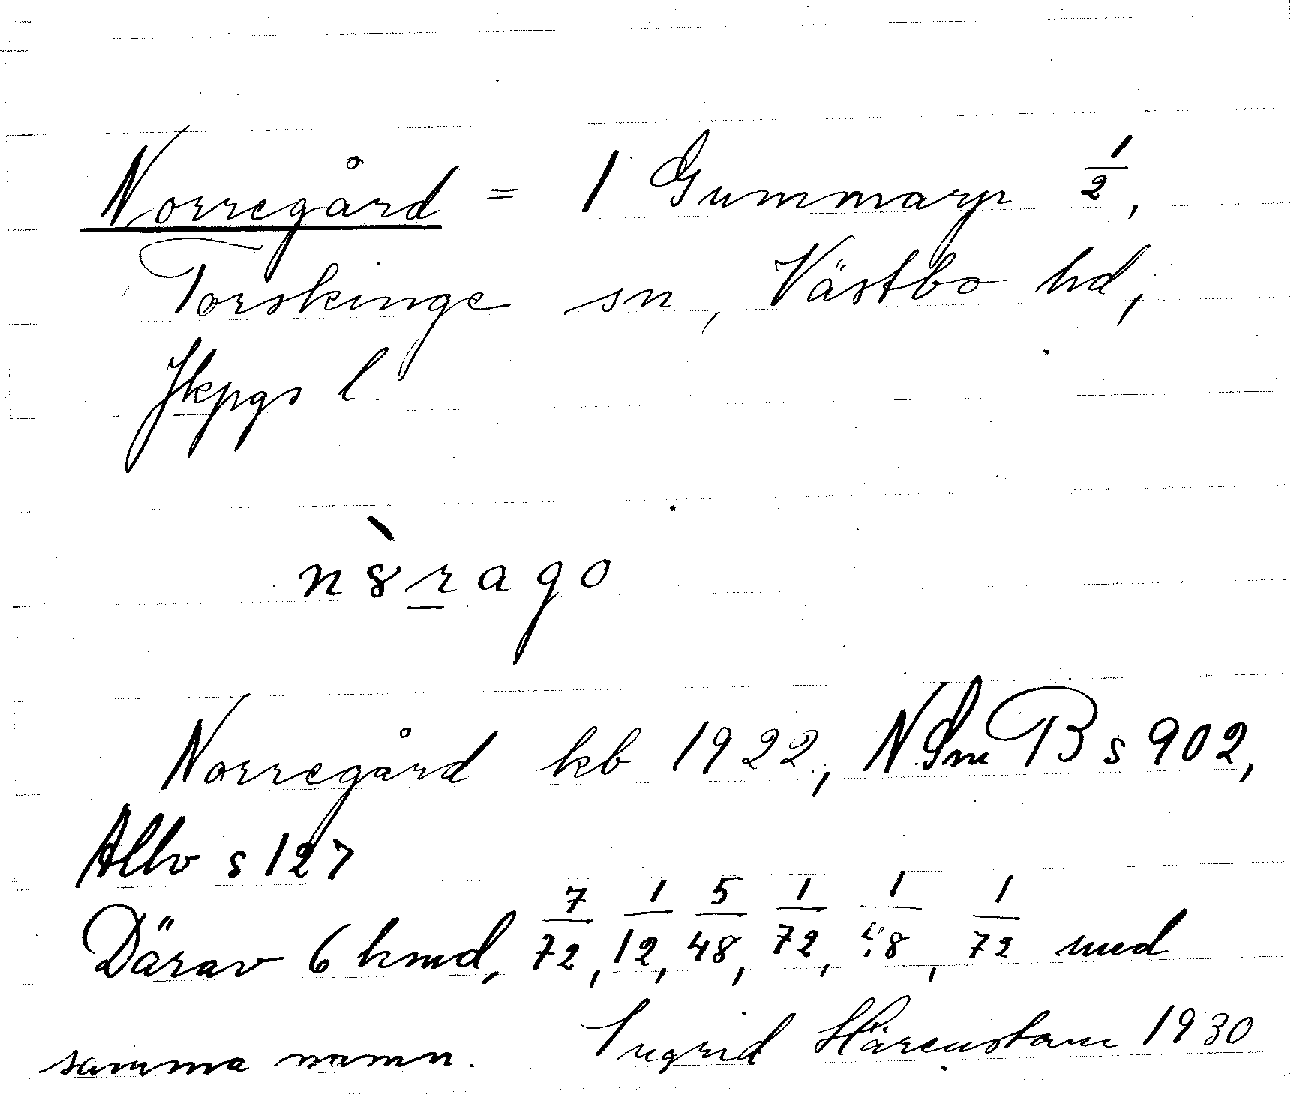 Norregård = 1 Gummarp 1/2,
Torskinge sn, Västbo hd,
Jkpgs l
n8̀r̲ago
Norregård kb 1922, NSm B s 902,
Allb s 127
Därav 6 hmd, 7/72, 1/12, 5/48, 1/72, 1/48, 1/72 med
samma namn. Ingrid Härenstam 1930